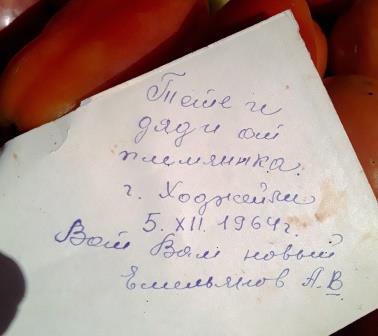 Тете и
дяди от
племянника.
г. Ходжейли
5. XII. 1964г.
Вот Вам новый
Емельянов А.В